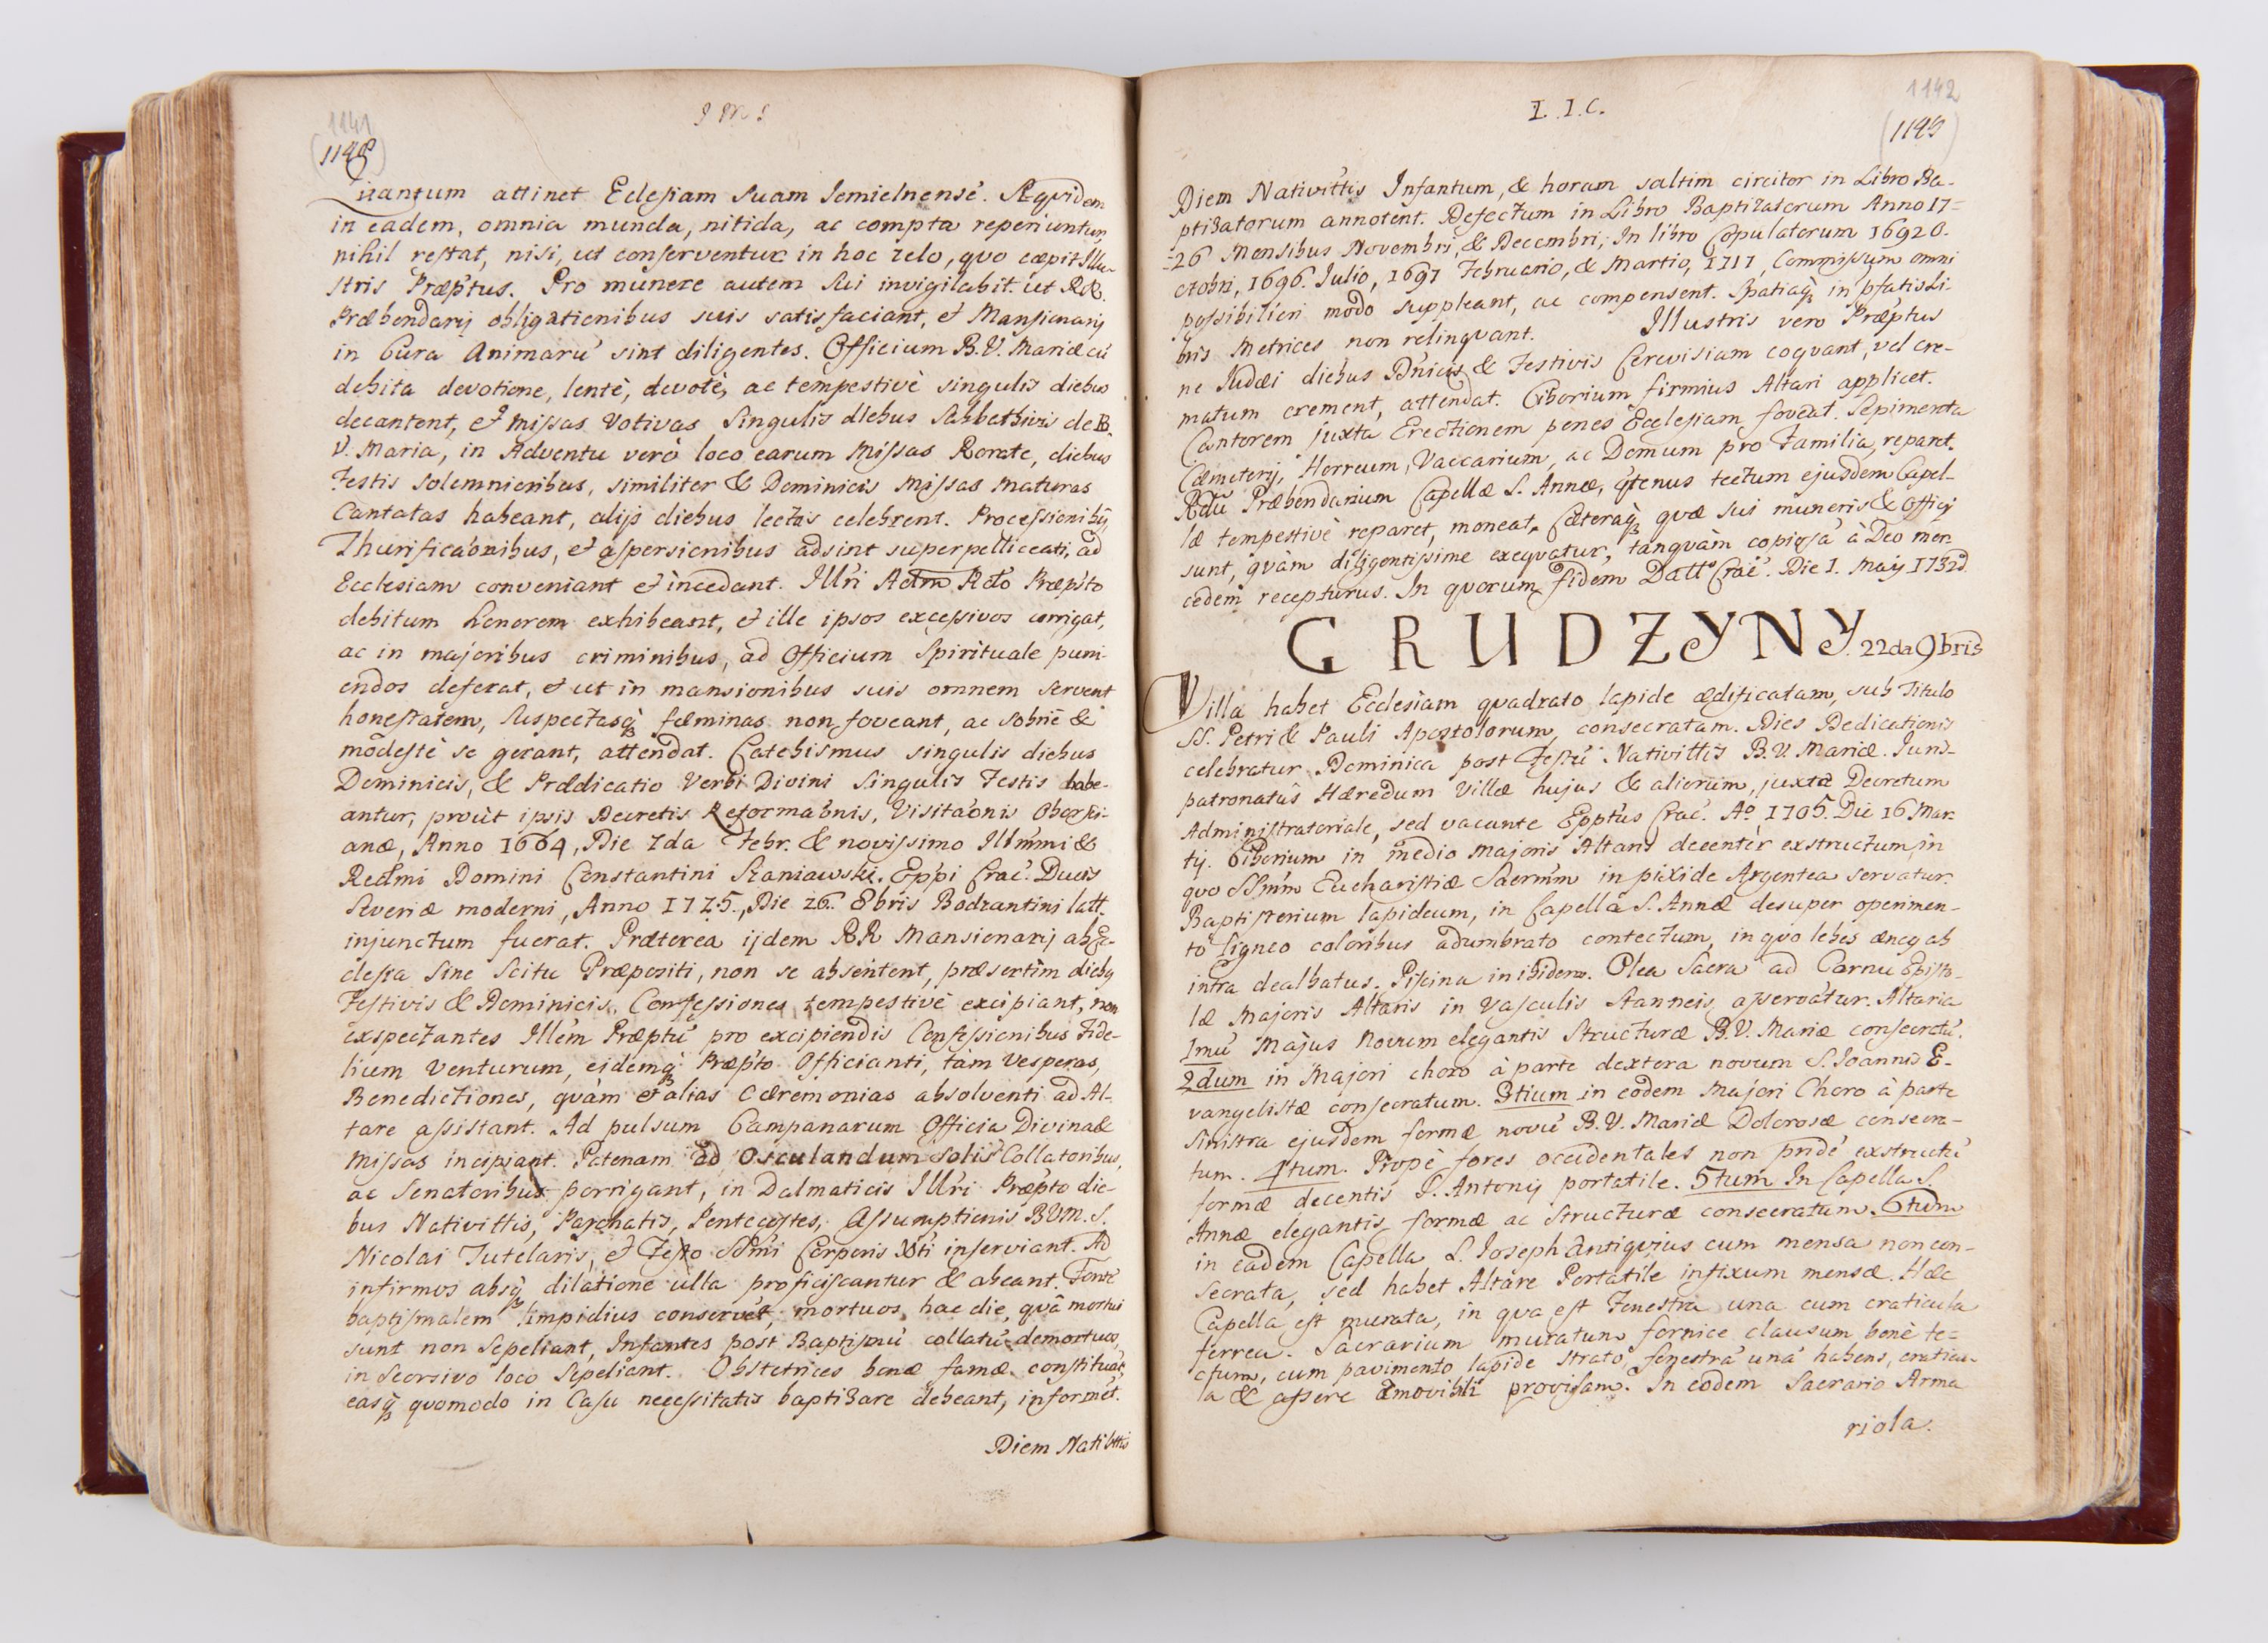 1141
(1148)
J M J
Quantum attinet Eclesiam suam Iemielnensé. Æqvidem
in eadem, omnia munda, nitida, ac compta reperiuntur,
nihil restat, nisi, ut conserventur in hoc zelo, qvo cœpit Illu-
stris Præptus. Pro munere autem sui invigilabit. ut RR.
Præbendarij obligationibus suis satisfaciant, et Mansionarij
in Cura Animarú sint diligentes. Officium B. V. Mariæ cú
debita devotione, lentè, devotè, ac tempestivè singulis diebus
decantent, et Missas Votivas Singulis diebus Sabbathivis de B.
V. Maria, in Adventu verò loco earum Missas Rorate, diebus
Festis solemnioribus, similiter & Dominicis Missas Maturas
Cantatas habeant, alijs diebus lectas celebrent. Processionibq
Thurificaonibus, et aspersionibus adsint superpelliceati, ad
Ecclesiam conveniant et incedant. Illri Adm Rdo Præpto
debitum Honorem exhibeant, et ille ipsos excessivos corrigat,
ac in majoribus criminibus, ad Officium Spirituale puni-
endos deferat, et ut in mansionibus suis omnem servent
honestatem, suspectasq fæminas non foveant, ac sobriè &
modestè se gerant, attendat. Catehismus singulis diebus
Dominicis, & Prædicatio Verbi Divini Singulis Festis habe-
antur, proùt ipsis Decretis Reformaonis, Visitaonis Oborsci-
anæ, Anno 1664, Die 7da Febr. & novissimo Illmmi &
Redmi Domini Constantini Szaniawski. Eppi Crac. Ducis
Severiæ moderni, Anno 1725., Die 26. 8bris Bodzantini latt.
injunctum fuerat. Præterea ijdem RR Mansionarij ab Ec-
clesia sine Scitu Præpositi, non se absentent, præsertìm diebq
Festivis & Dominicis. Confessiones tempestivè excipiant, non
exspectantes Illem Præptú pro excipiendis Confessionibus Fide-
lium Venturum, eidemq Præpto Officianti, tàm Vesperas,
Benedictiones, qvàm et alias Cæremonias absolventi ad Al-
tare assistant. Ad pulsum Campanarum Officia Divina &
Missas incipiant. Patenam ad Osculandum solis Collatoribus,
ac Senatoribus porrigant, in Dalmaticis Illri Præpto die-
bus Nativittis, Paschatis, Pentecostes, Assumptionis BVM. S.
Nicolai Tutelaris, et Festo SSmi Corporis Xti inserviant. Ad
infirmos absq dilatione ulla proficiscantur & abeant. Fonté
baptismalem limpidius conservét, mortuos hac die, qvâ mortui
sunt non sepeliant, Infantes post Baptismú collatú demortuos,
in Seorsivo loco Sepeliant. Obstetrices bonæ famæ constituát,
easq quomodo in Casu necessitatis baptizare debeant, informét.
Diem Nativittis
1142
(1149)
I. I. C.
Diem Nativittis Infantum, & horam saltim circiter in Libro Ba-
ptizatorum annotent. Defectum in Libro Baptizatorum Anno 17=
=26 Mensibus Novembri, & Decembri; In libro Copulatorum 1692 O-
ctobri, 1696. Julio, 1697 Februario, & Martio, 1711, Commissum omni
possibiliori modo suppleant, ac compensent. Spatiaq in pfatis Li-
bris Metrices non relinqvant. Illustris vero Præptus
ne Judæi diebus Dnicis & Festivis Cerevisiam coqvant, vel cre-
matum crement, attendat. Ciborium firmius Altari applicet.
Cantorem juxta Erectionem penes Ecclesiam foveat. Sepimenta
Cœmeterij, Horreum, Vaccarium, ac Domum pro Familia, reparet.
Rdú Præbendarium Capellæ S. Annæ, qtenus tectum ejusdem Capel-
læ tempestivè reparet, moneat. Cæteraq quæ sui muneris & Officij
sunt, qvàm diligentissime exeqvatur, tanqvàm copiosá à Deo mer-
cedem recepturus. In qvorum fidem Datt Crac. Die 1. Maij 1732d.
GRUDZYNY. 22da 9bris
Villa habet Ecclesiam qvadrato lapide ædificatam, sub Titulo
SS. Petri & Pauli Apostolorum, consecratam. Dies Dedicationis
celebratur Dominica post Festú Nativittis B. V. Mariæ. Juris-
patronatûs Hæredum Villæ hujus & aliorum, juxta Decretum
Administratoriale, sed vacante Epptus Crac. Aº 1705. Die 16 Mar-
tij. Ciborium in medio Majoris Altaris decentèr exstructum, in
quo SSmm Eucharistiæ Sacrmm in pixide Argentea servatur.
Baptisterium lapideum, in Capellâ S. Annæ desuper operimen-
to ligneo coloribus adumbrato contectum, in qvo lebes æneq ab
intra dealbatus. Piscina in ibidem. Olea Sacra ad Cornu Episto-
læ Majoris Altaris in Vasculis Stanneis asservátur. Altaria
1mú Majus Novum elegantis Structuræ B. V. Mariæ consecratú.
2dum in Majori choro à parte dextera novum S. Joannis E-
vangelistæ consecratum. 3tium in eodem Majori Choro à parte
sinistra ejusdem formæ novú B. V. Mariæ Dolorosæ consecra-
tum. 4tum. Propè fores occidentales non pridé exstructú
formæ decentis S. Antonij portatile. 5tum In Capella S.
Annæ elegantis formæ ac structuræ consecratum. 6tum
in eadem Capella S. Joseph Antiqvius cum mensa non con-
secrata, sed habet Altare Portatile infixum mensæ. Hæc
Capella est murata, in qva est Fenestra una cum craticula
ferrea. Sacrarium muratum fornice clausum, benè te-
ctum, cum pavimento lapide strato, fenestrá uná habens, craticu-
la & assere amovibili provisam. In eodem Sacrario Arma
riola.